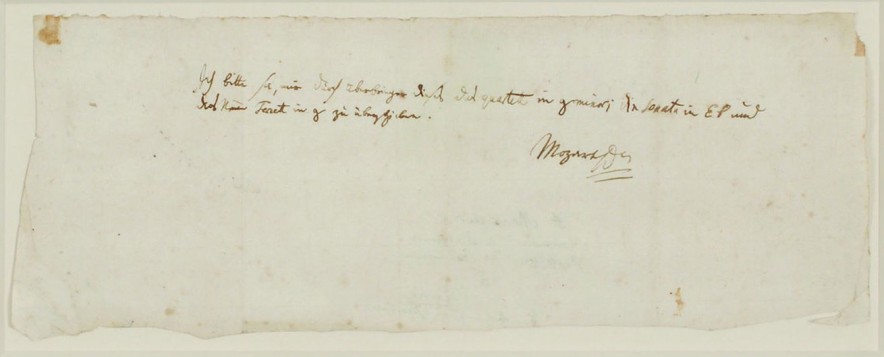 Ich bitte Sie, mir durch überbringer dieses das quartett in g minori, die Sonata in Eb und
das Neue Terzett in g zu überschicken.
Mozart